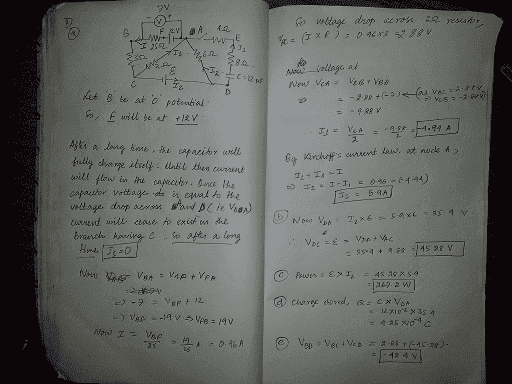 3)
(a)
7V
V
B
F
12V
A
1Ω
E
I
25Ω
I3
3Ω
2Ω
6Ω
8Ω
I2
C
ε
I2
D
Let 'B' be at '0' potential
So, F will be at +12V
After a long time, the capacitor will
fully charge itself. Until then current
will flow in the capacitor. Once the
capacitor voltage is equal to the
voltage drop across A and D (ie VDA)
current will cease to exist in the
branch having C. So after a long
time I3=0
Now VBA = VBF + VFA
⇒ -7 = VBF + 12
⇒ VBF = -19V ⇒ VFB = 19V
Now I = VBF/25 = 19/25 A = 0.96A
So voltage drop across 3Ω resistor,
= (I×R) = 0.96×3 = 2.88V
Now voltage at
Now VCA = VCB + VBA
⇒ = -2.88 + (-7) ← (as VBC = 2.88V ⇒ VCB = -2.88V)
= -9.88V
∴ I1 = VCA/2 = -9.88/2 = -4.94A
By Kirchoff's current law at node A,
I2 + I1 = I
⇒ I2 = I - I1 = 0.96 - (-4.94)
I2 = 5.9A
(b) Now VDA = I2×6 = 5.9×6 = 35.4V
∴ VDC = ε = VDA + VAC
= 35.4 + 9.88 = 45.28V
(c) Power = ε×I2 = 45.28×5.9
= 267.2W
(d) Charge stored, Q = C×VDA
= 12×10⁻⁶×35.4
= 4.25×10⁻⁴ C
(e) VBD = VBC + VCD = 2.88 + (-45.28)
= -42.4V